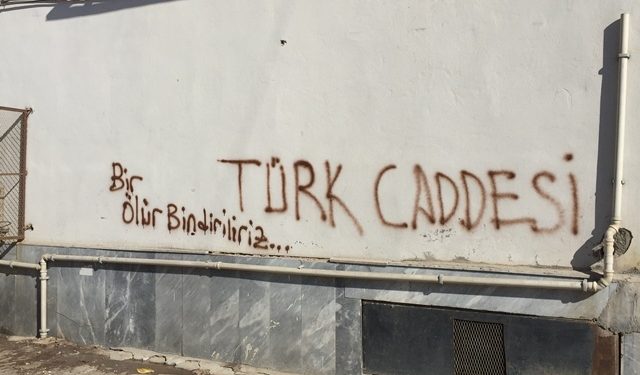 Bir
Ölür Bindiriliriz...
TÜRK CADDESİ